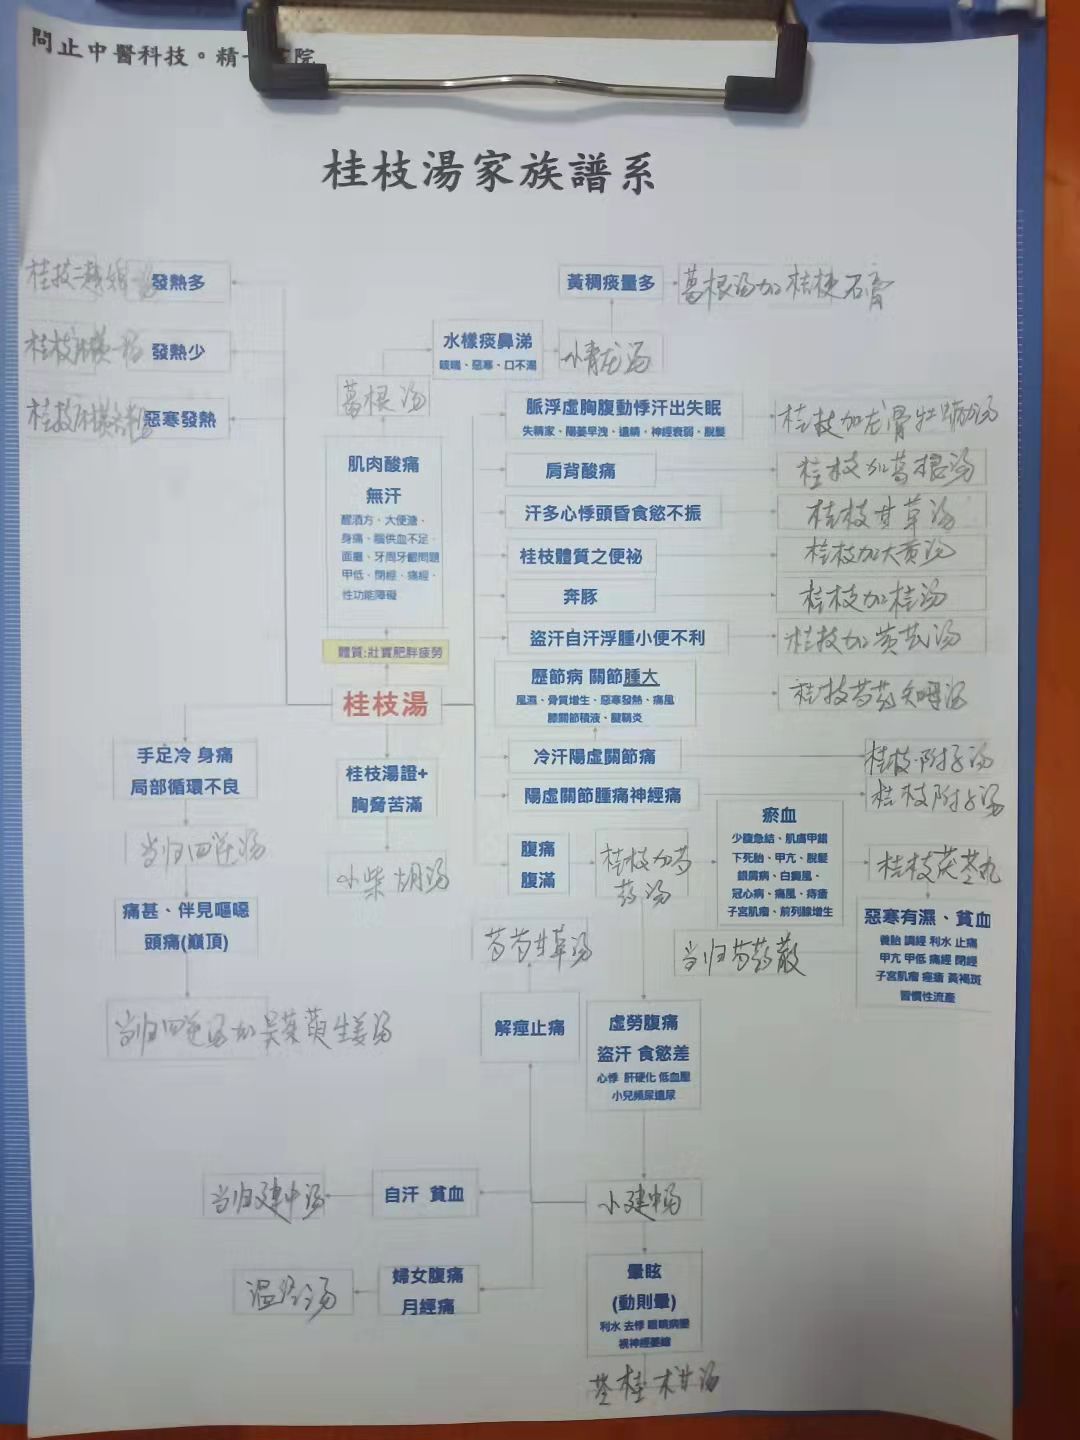 問止中醫科技。精
院
桂枝湯家族譜系
發熱多
發熱少
惡寒發熱
黃稠痰量多
葛根汤加桔梗石膏
水樣痰鼻涕
咳喘、惡寒、口不渴
小青龙汤
葛根汤
肌肉酸痛
無汗
醒酒方、大便溏、
身痛、腦供血不足、
面癱、牙周牙齦問題
甲低、閉經、痛經、
性功能障礙
體質:壯實肥胖疲勞
桂枝湯
脈浮虛胸腹動悸汗出失眠
失精家、陽萎早洩、遺精、神經衰弱、脫髮
桂枝加龙骨牡蛎汤
肩背酸痛
桂枝加葛根汤
汗多心悸頭昏食慾不振
桂枝甘草汤
桂枝體質之便祕
桂枝加大黄汤
奔豚
桂枝加桂汤
盜汗自汗浮腫小便不利
桂枝加黄芪汤
歷節病 關節腫大
風濕、骨質增生、惡寒發熱、痛風
膝關節積液、腱鞘炎
桂枝芍药知母汤
冷汗陽虛關節痛
桂枝附子汤
陽虛關節腫痛神經痛
桂枝附子汤
手足冷 身痛
局部循環不良
当归四逆汤
痛甚、伴見嘔噁
頭痛(巔頂)
当归四逆汤加吴茱萸生姜汤
桂枝湯證+
胸脅苦滿
小柴胡汤
腹痛
腹滿
桂枝加芍
药汤
瘀血
少腹急結、肌膚甲錯
下死胎、甲亢、脫髮
銀屑病、白癜風、
冠心病、痛風、痔瘡
子宮肌瘤、前列腺增生
桂枝茯苓丸
惡寒有濕、貧血
養胎 調經 利水 止痛
甲亢 甲低 痛經 閉經
子宮肌瘤 痤瘡 黃褐斑
習慣性流產
当归芍药散
芍芍甘草汤
解痙止痛
虛勞腹痛
盜汗 食慾差
心悸 肝硬化 低血壓
小兒頻尿遺尿
当归建中汤
自汗 貧血
小建中汤
温经汤
婦女腹痛
月經痛
暈眩
(動則暈)
利水 去悸 眼睛病變
視神經萎縮
苓桂术甘汤